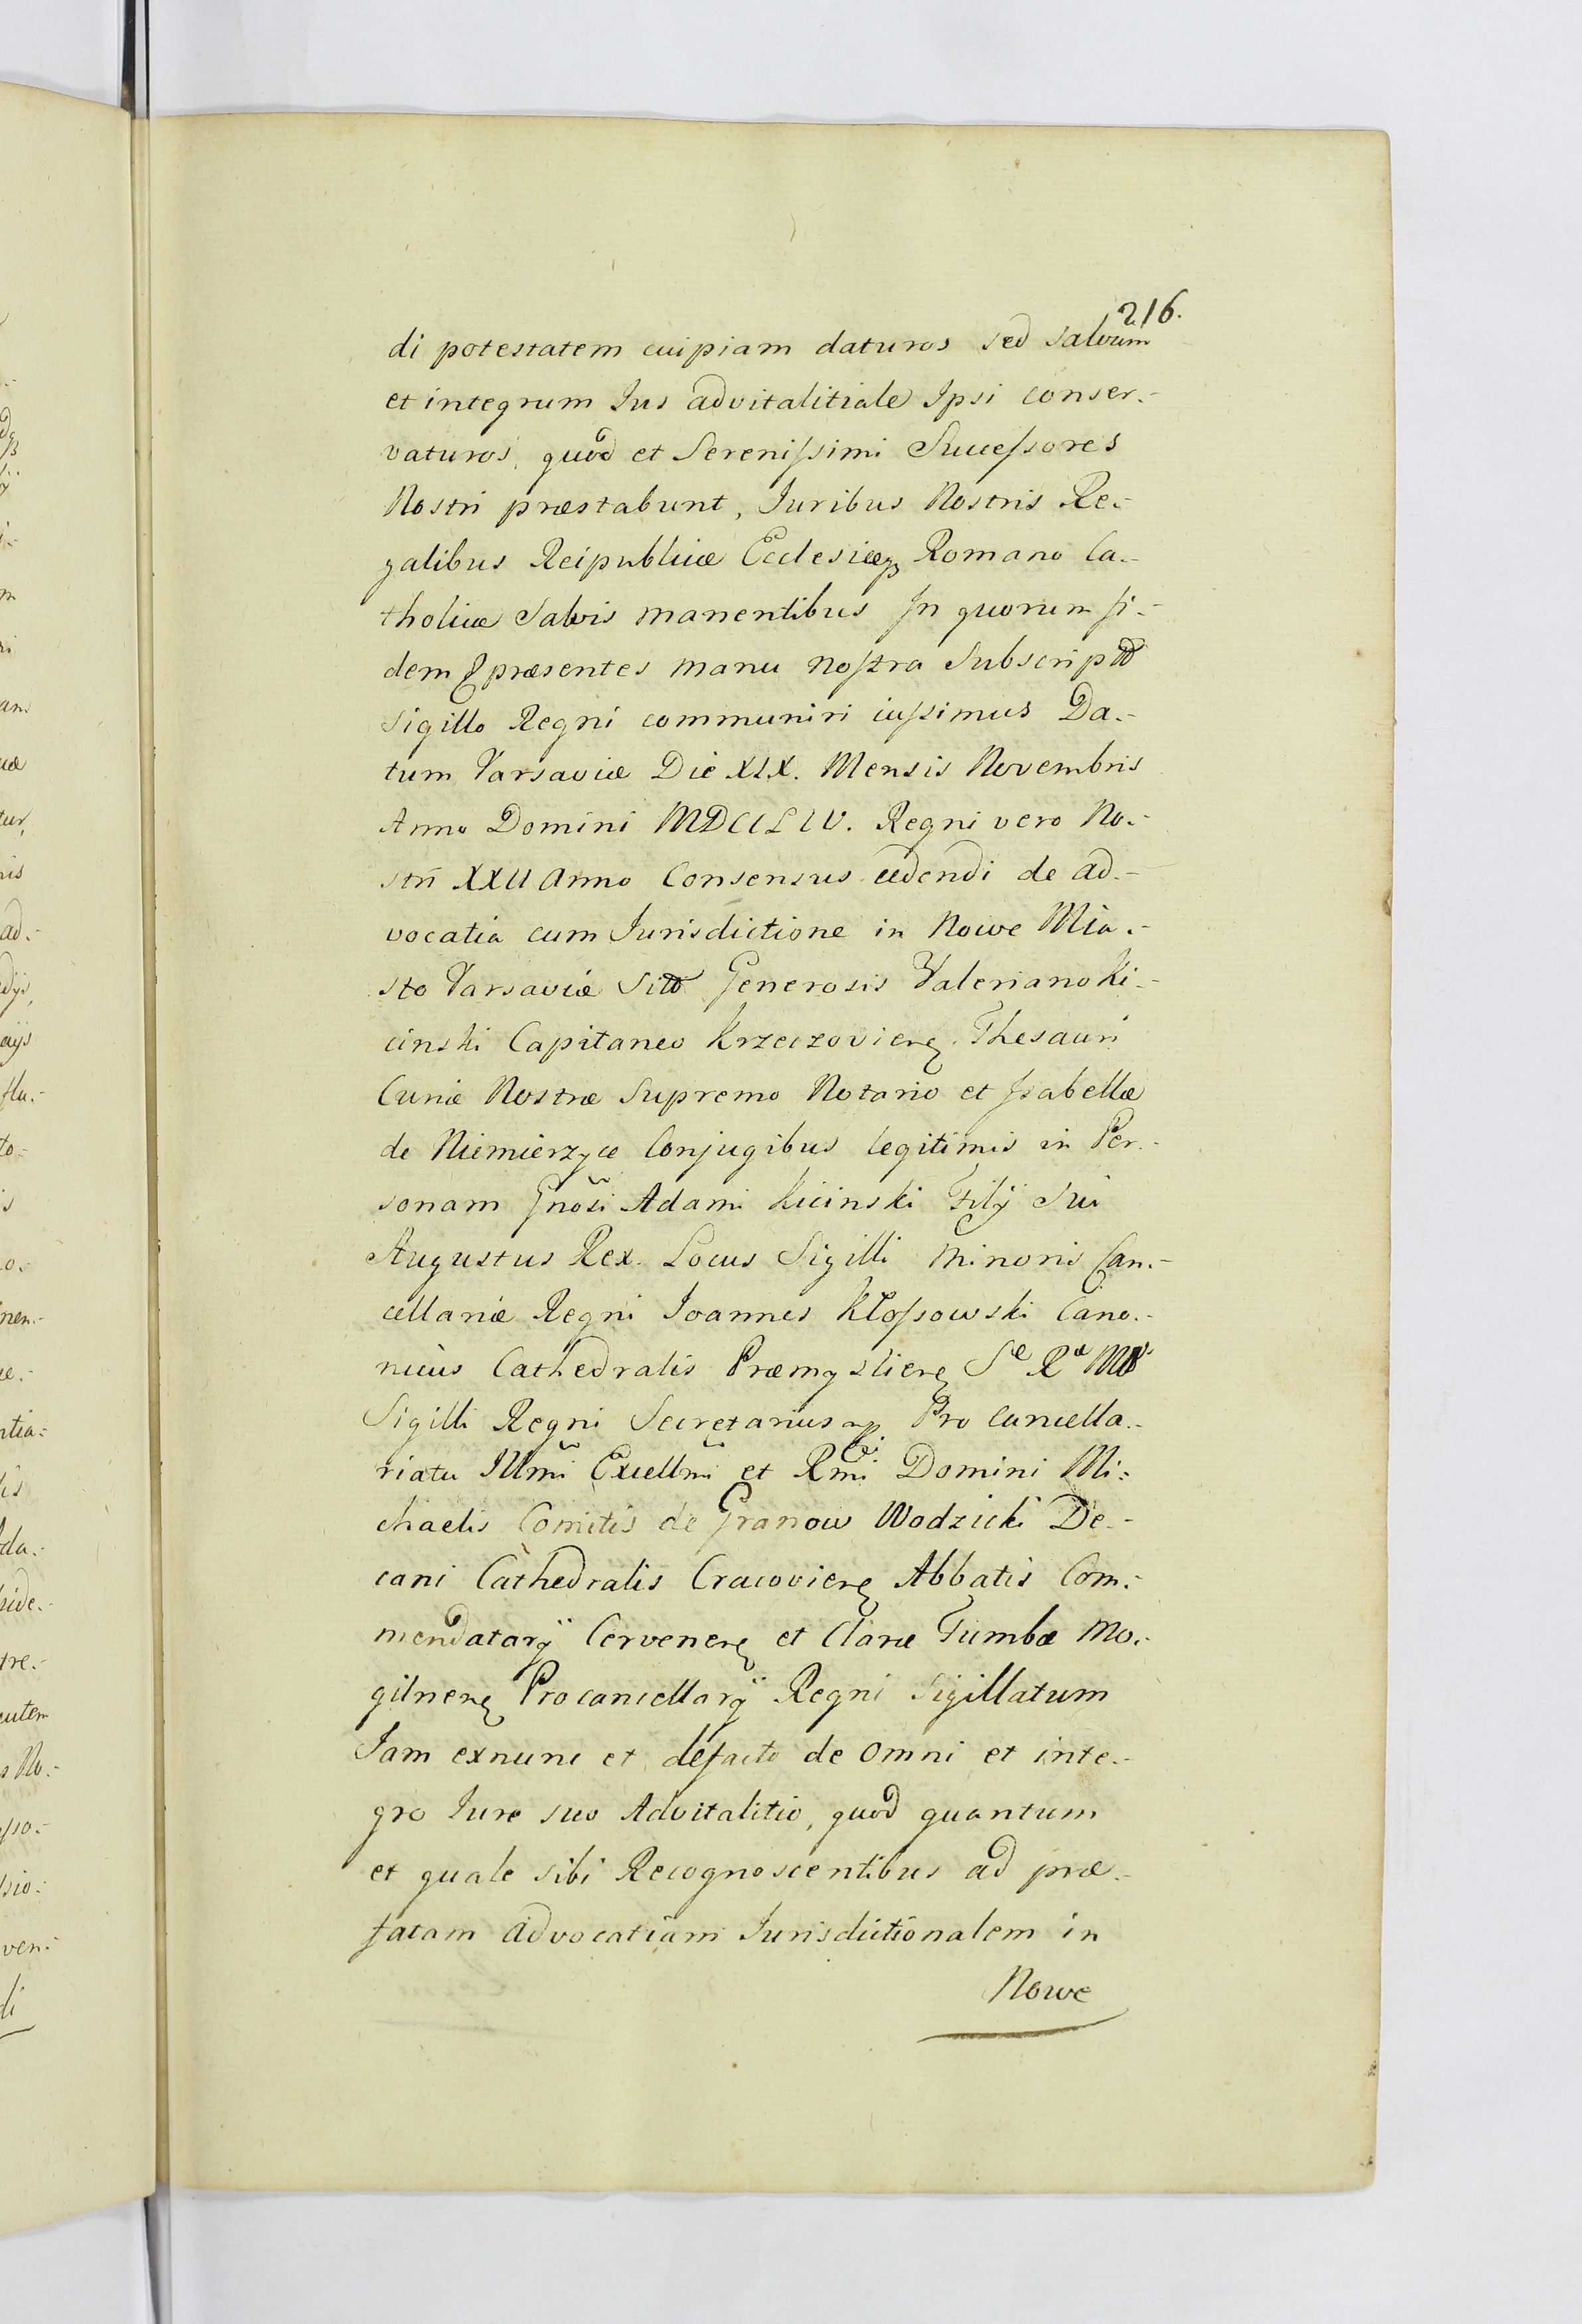 216.
di potestatem cuipiam daturos sed salvum
et integrum Jus advitalitiale Ipsi conser.-
vaturos, quod et Serenissimi Successores
Nostri præstabunt, Juribus Nostris Re.-
galibus Reipublicæ Ecclesiæq Romano Ca.-
tholicæ Salvis manentibus In quorum fi.-
dem præsentes manu nostra Subscriptas
Sigillo Regni communiri iussimus Da.-
tum Varsaviæ Die XIX. Mensis Novembris
Anno Domini MDCCLIV. Regni vero No.-
stri XXII Anno Consensus cedendi de ad.-
vocatia cum Jurisdictione in Nowe Mia.-
sto Varsaviæ Sitto Generosis Valeriano Ki.-
cinski Capitaneo Krzeczoviens Thesauri
Curiæ Nostræ Supremo Notario et Isabellæ
de Niemierzyce Conjugibus legitimis in Per.-
sonam Gnosi Adami Kicinski Filij Sui
Augustus Rex. Locus Sigilli Minoris Can.-
cellariæ Regni Joannes Kłossowski Cano.-
nicus Cathedralis Præmysliens Sæ Ræ Mtis
Sigilli Regni Secretarius mp Pro Cancella.-
riatu Illmi Excellmi et Rmi Domini Mi.-
chaelis Comitis de Granow Wodzicki De.-
cani Cathedralis Cracoviens Abbatis Com.-
mendatarij Cervenens et Claræ Tumbæ Mo.-
gilnens Procancellarij Regni Sigillatum
Jam exnunc et defacto de omni et inte.-
gro Jure suo Advitalitio, quod quantum
et quale sibi Recognoscentibus ad præ.-
fatam advocatiam Jurisdictionalem in
Nowe